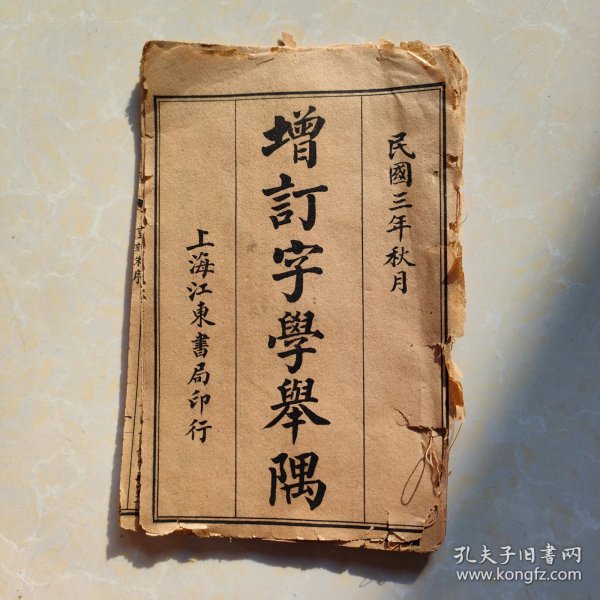 民國三年秋月
增訂字學舉隅
上海江東書局印行
孔夫子旧书网
www.kongfz.com